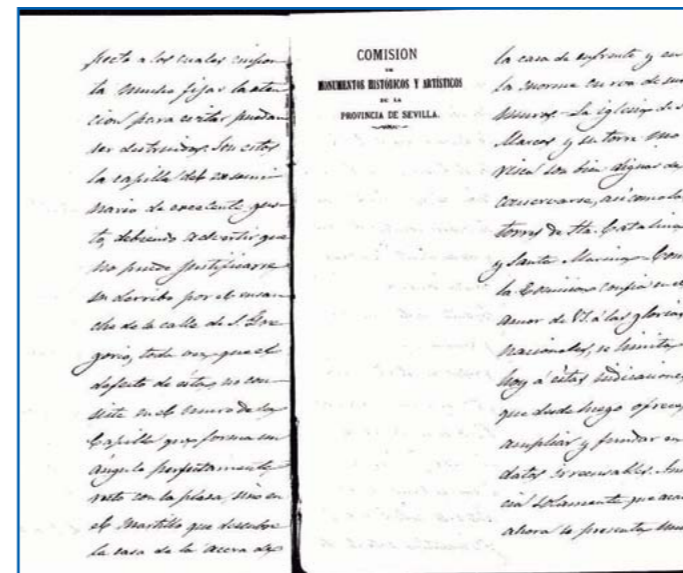 pecto a los cuales impor-
ta mucho fijar la aten-
cion para evitar puedan
ser destruidos. Son estos
la capilla del
nario de excelente gus-
to, debiendo advertir que
no puede justificarse
su derribo por el ensan-
che de la calle de S. Gre-
gorio, toda vez que el
defecto de ésta, no con-
siste en el muro de la
Capilla que forma un
ángulo perfectamente
recto con la plaza, sino en
el Martillo que descubre
la casa de la acera de
COMISION
DE
MONUMENTOS HISTÓRICOS Y ARTÍSTICOS
DE LA
PROVINCIA DE SEVILLA.
la casa de enfrente y en
la enorme curva de sus
muros. La iglesia de S.
Marcos y su torre mo
risca son bien dignas de
conservarse, así como las
torres de Sta. Catalina
y Santa Marina. Como
la Comision confia en el
amor de VS. á las glorias
nacionales, se limita
hoy á estas indicaciones
que desde luego ofrece
ampliar y fundar en
datos irrecusables.
solamente que
ahora le presenta